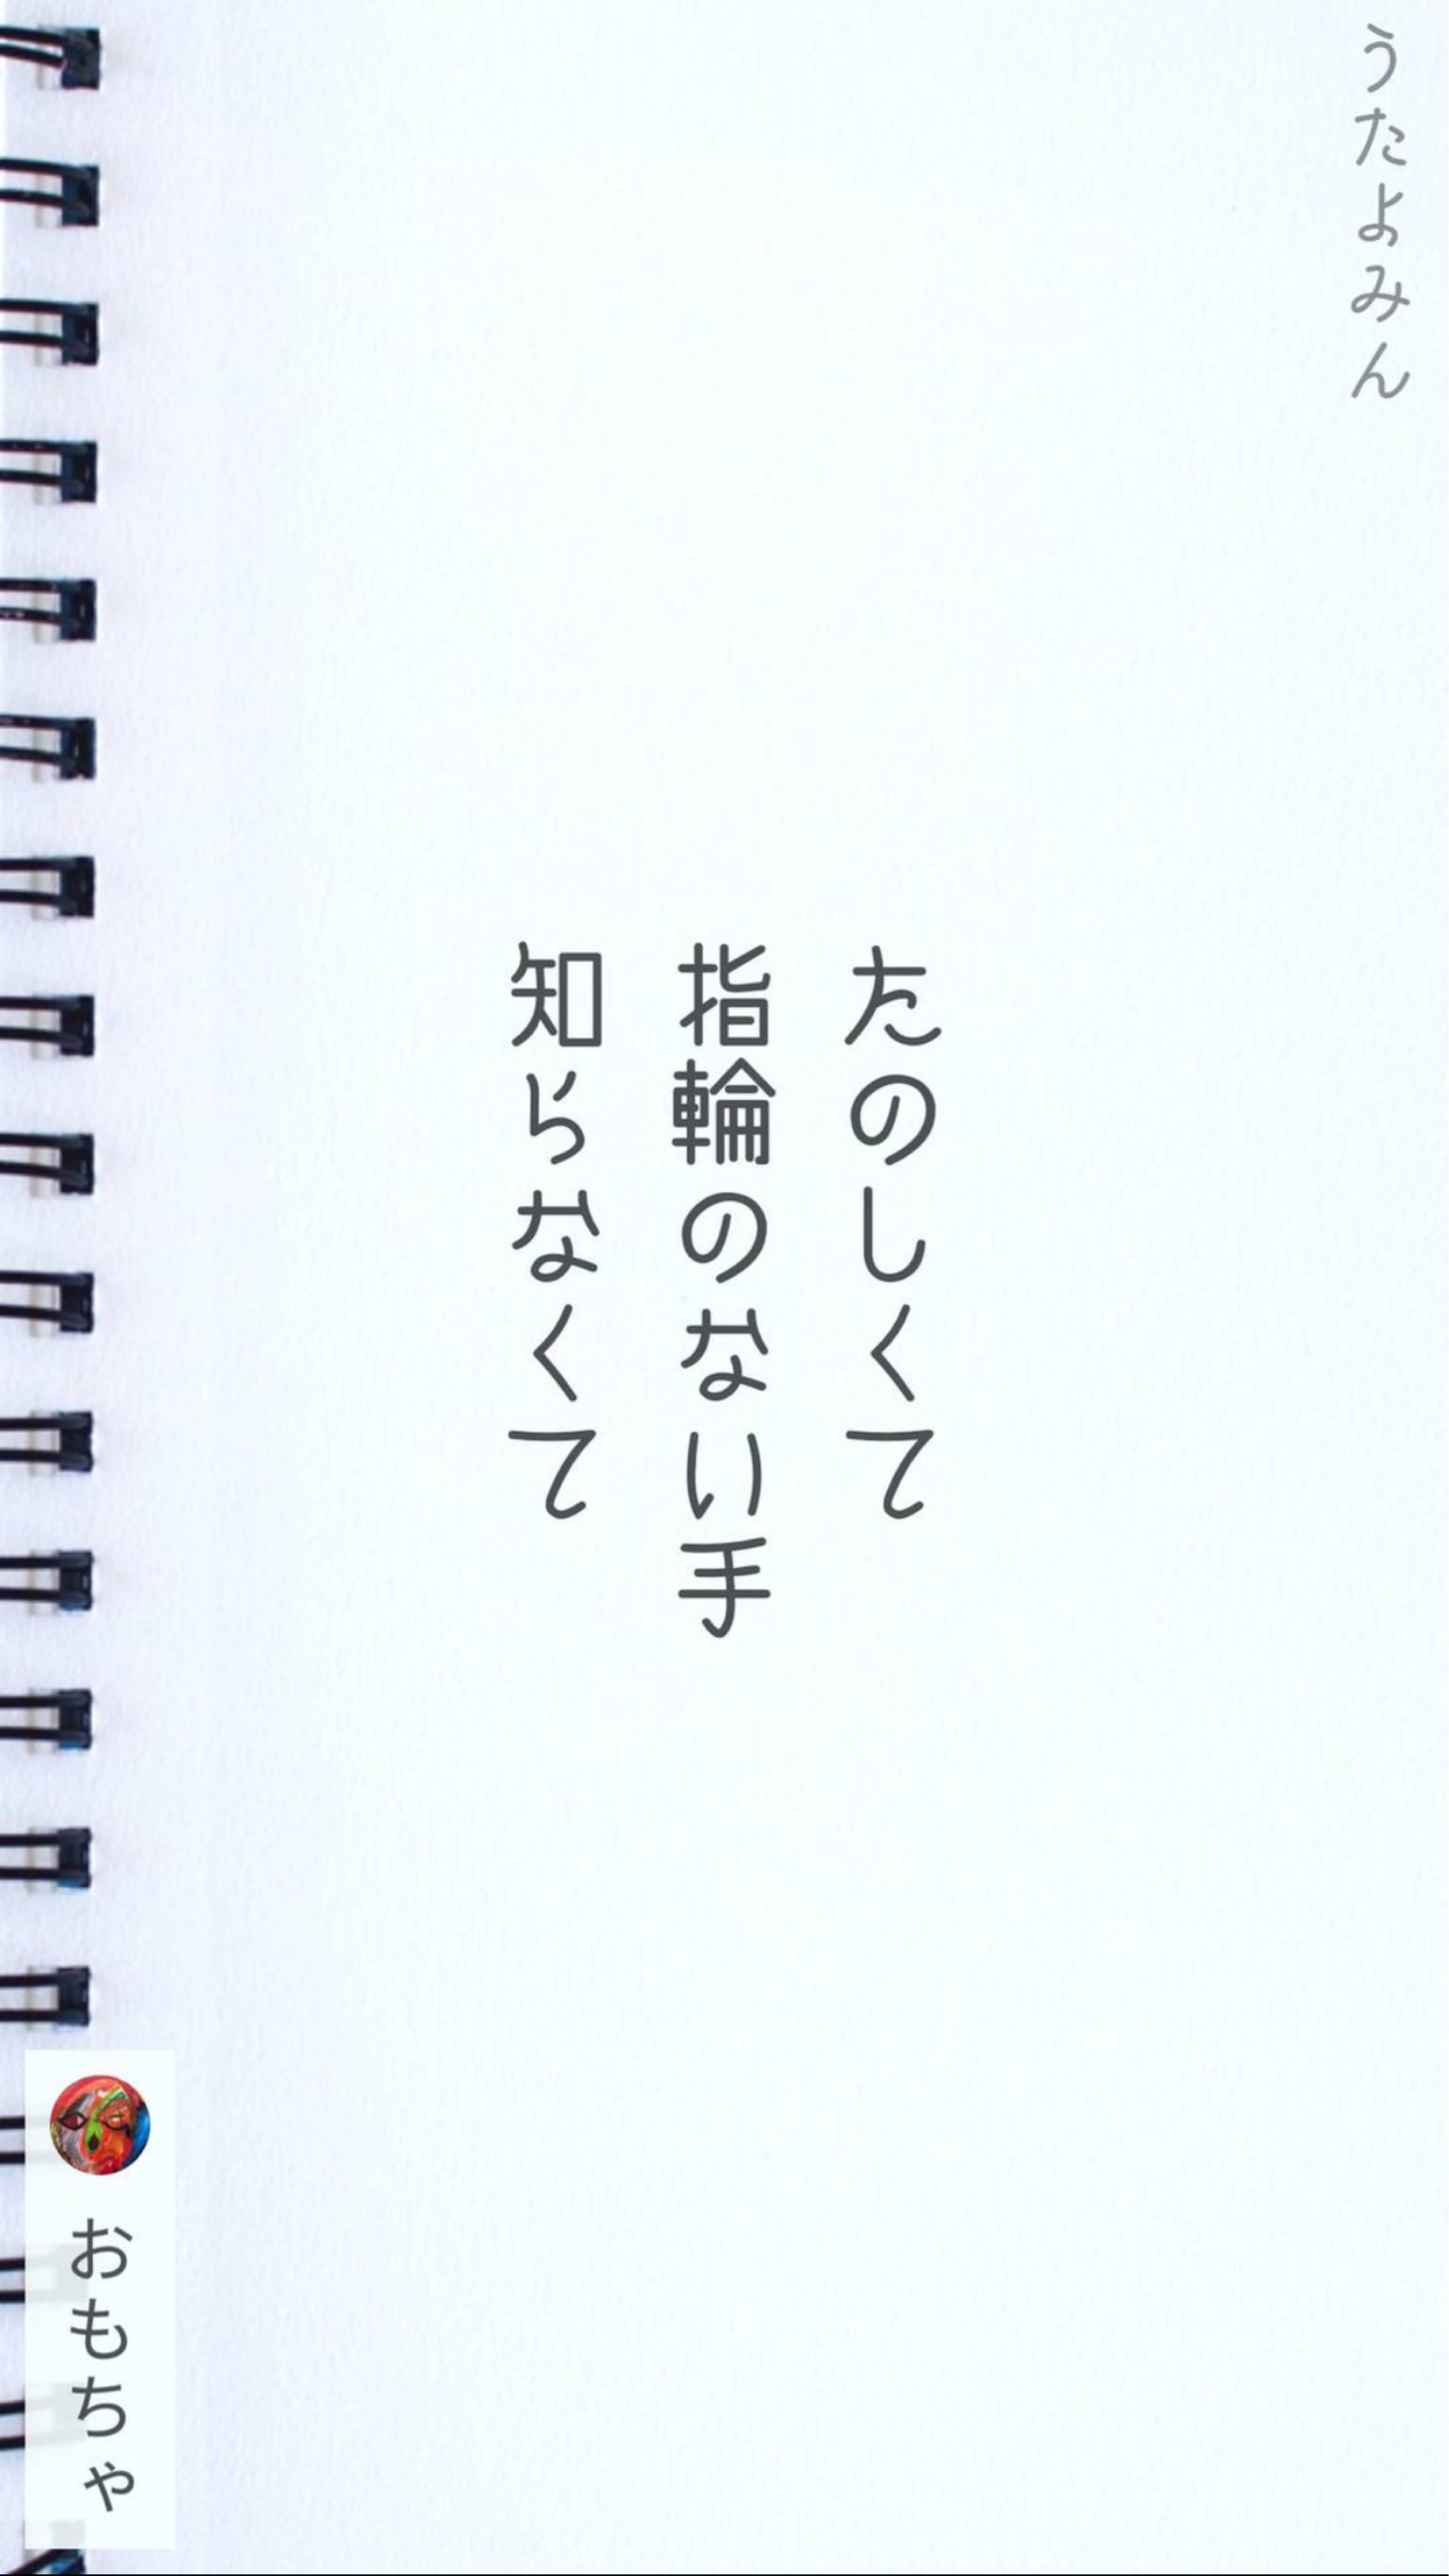 うたよみん
たのしくて
指輪のない手
知らなくて
おもちゃ